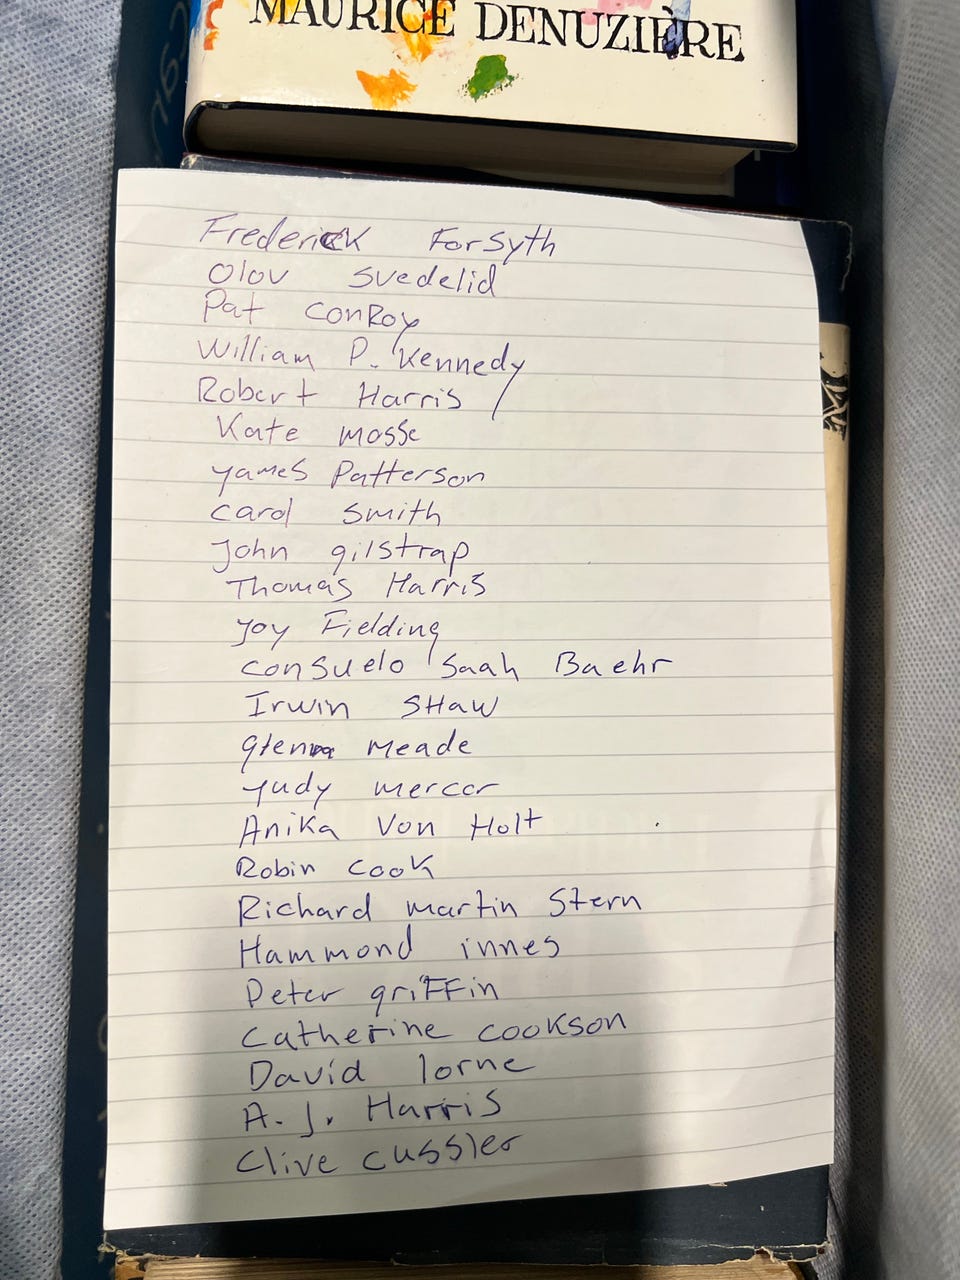 MAURICE DENUZIÈRE
Frederick Forsyth
Olov Svedelid
Pat Conroy
William P. Kennedy
Robert Harris
Kate mosse
yames Patterson
carol smith
John gilstrap
Thomas Harris
yoy Fielding
consuelo Saah Baehr
Irwin SHaw
glenn meade
yudy mercer
Anika Von Holt
Robin cook
Richard martin Stern
Hammond innes
Peter griFFin
Catherine cookson
David lorne
A. J. Harris
Clive cussler